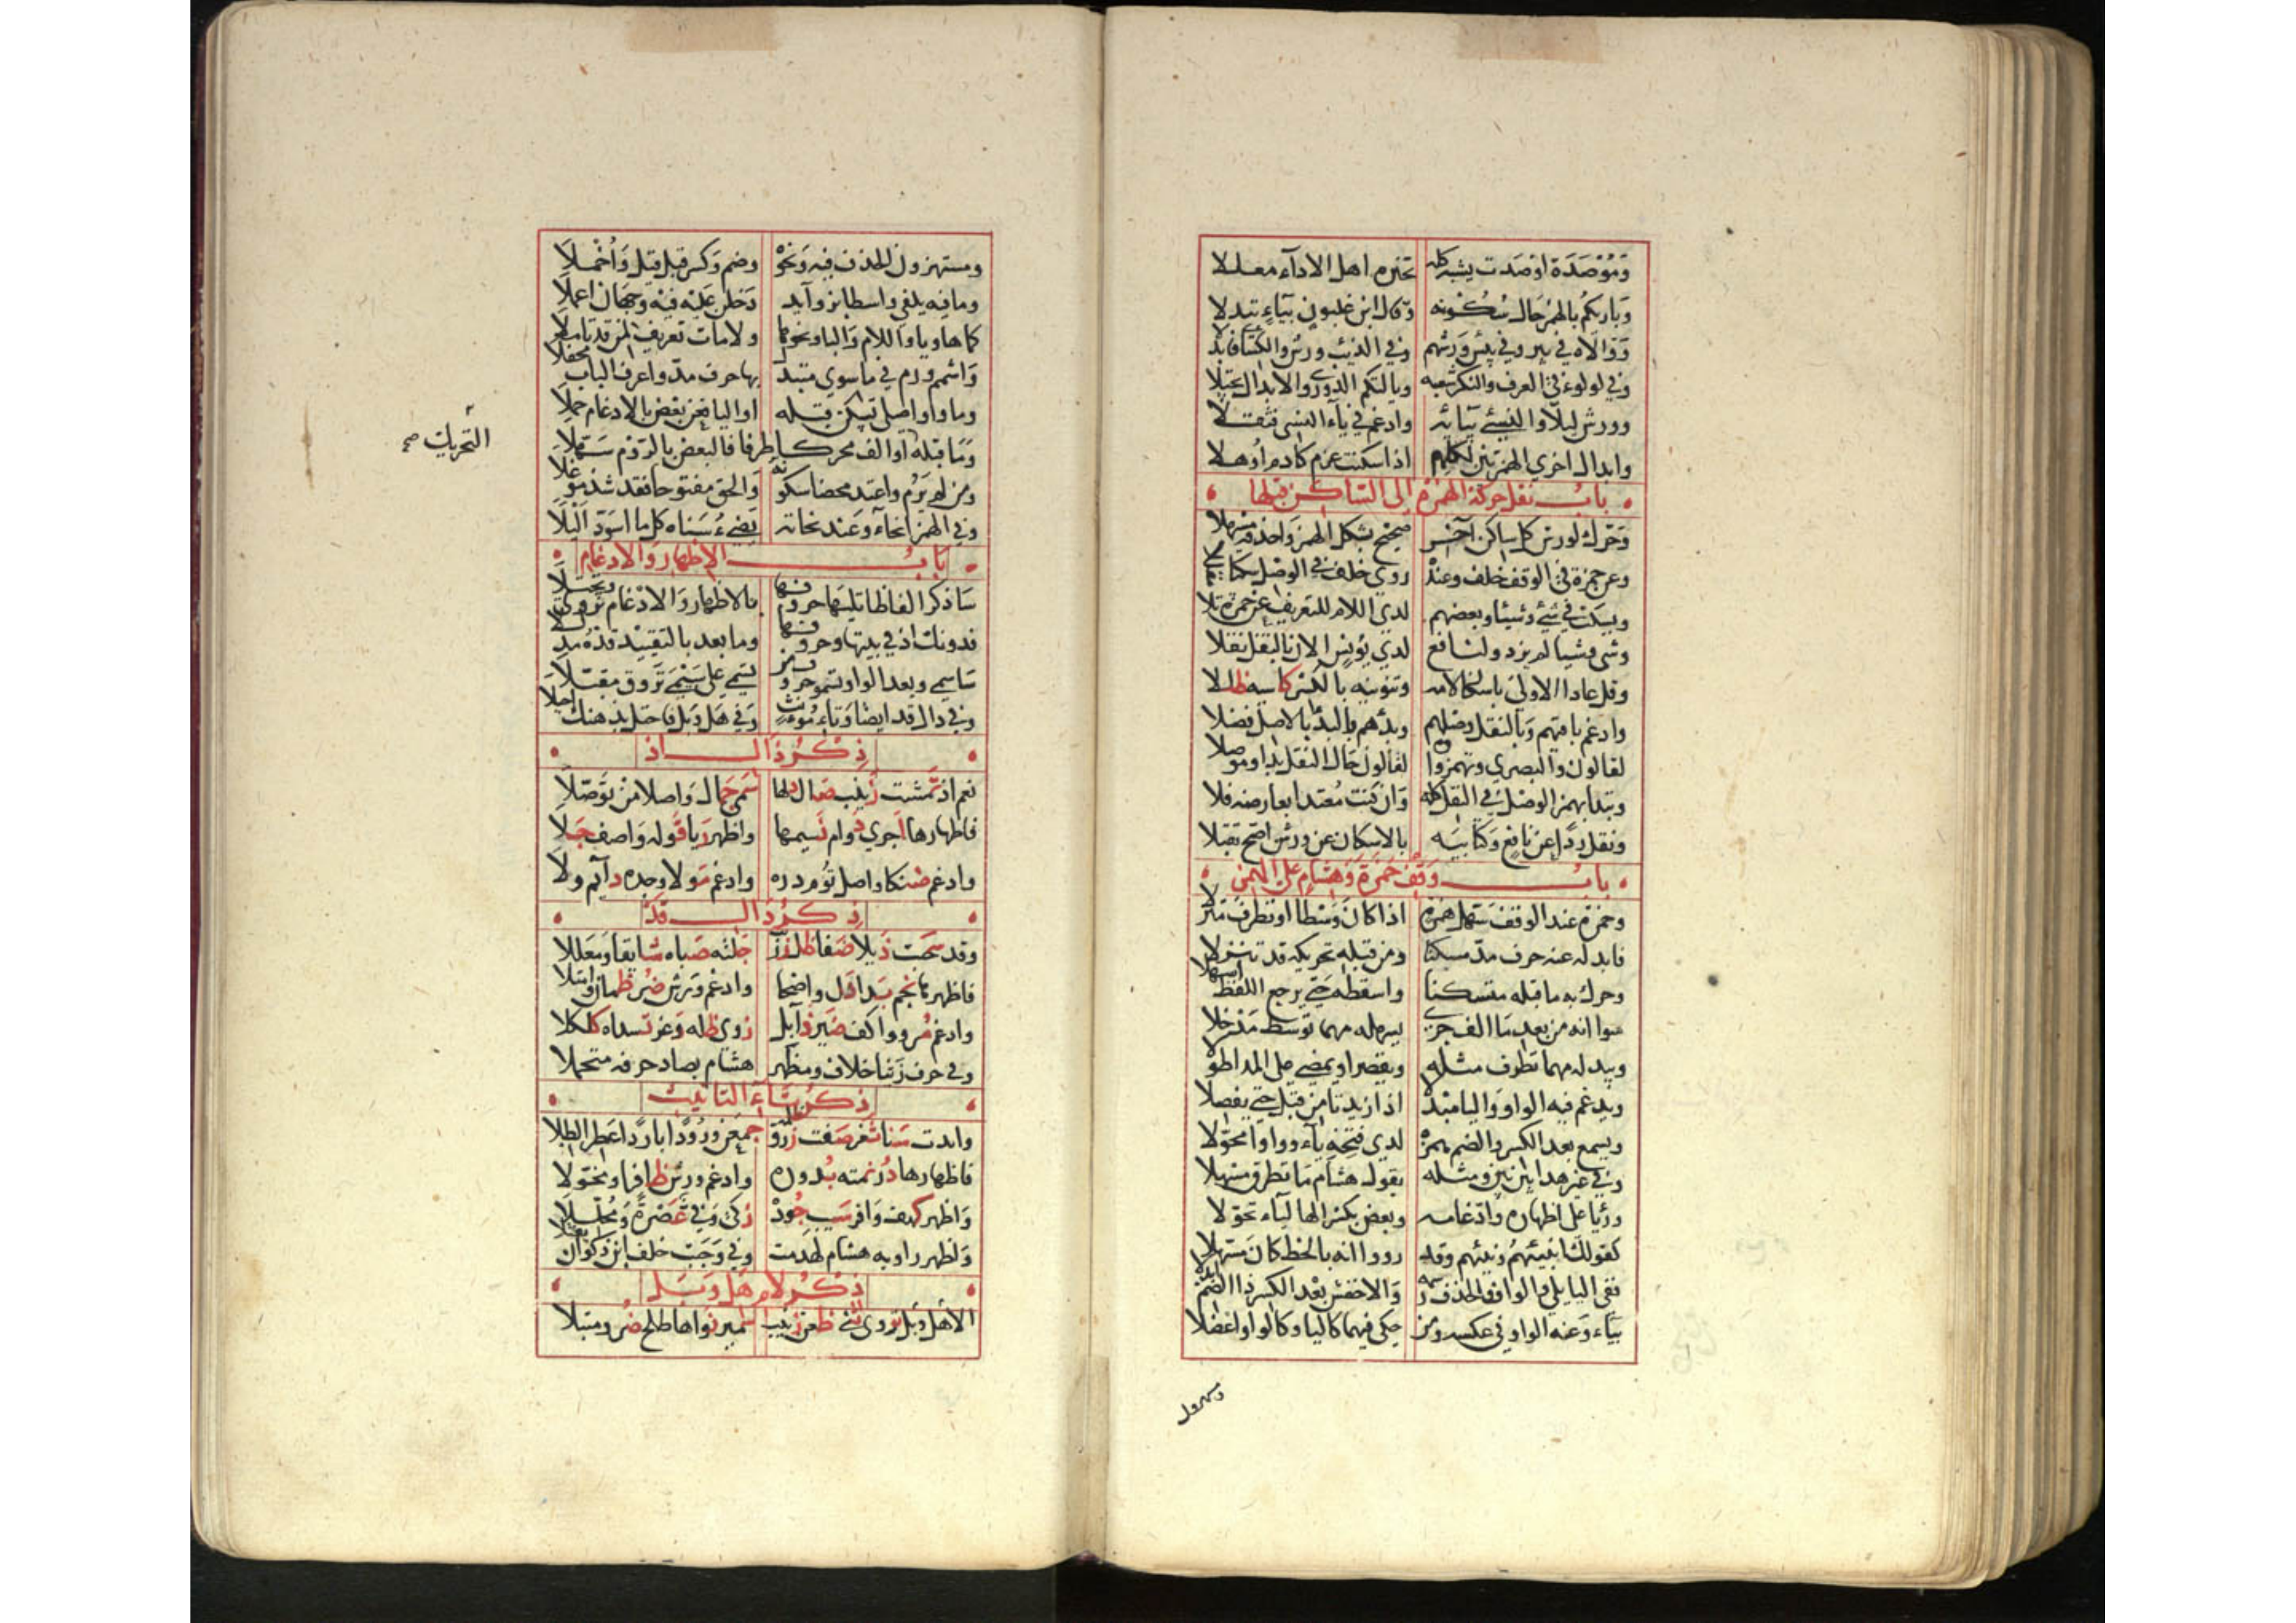 وَمُؤْصَدَة اوصَدت يشبه كله تخيره اهل الاداء معللا
وَبارِيكُم بالهمز حَال سُكُونه وقال ابن غلبون بيَاءٍ تبدلا
وَوَالاه في بير وفي بِئس وَرشهم وفي الذئب ورش والكسَا فابدلا
وفي لولوء في العرف والنكر شعبه ويالتكم الدوري والابدال يجتلا
وورش ليلّا والنسئ بيَائه وادغم في يَاء النسى فثقلا
وابدال اخري الهمزتين لكلهم اذا سكنت عزم كادم اُوهلا
باب نقل حركة الهمزة الى الساكن قبلها
وَحَرك لورش كل ساكن آخر صحيح بشكل الهمز وَاحذفه مسهلا
وعن حمزة في الوقف خلف وعنده روي خلف في الوصل سكتا مقللا
ويسكت في شئ وشيئا وبعضهم لدي اللام للتعريف عن حمزة تلا
وشى وشيا لم يزد ولنافع لدي يُونس الان بالنقل نقلا
وقل عادا الاولى باسكان لامه وتنوينه بالكسر كاسيه ظللا
وادغم باقيهم وَبالنقل وصلهم وبدؤهم والبدؤ بالاصل فضلا
لقالون والبصري وتهمز واوه لقالون حَال النقل بدا وموصلا
وتبدا بهمز الوصل في النقل كله وَان كنت مُعتدا بعارضه فلا
ونقل ردًا عن نافع وَكتابيَه بالاسكان عن ورش اصح تقبلا
باب وَقف حَمزة وَهشام على الهمز
وحمزة عند الوقف سَهل همزه اذا كانَ وَسطا او تطرف منزلا
فابدله عنه حرف مدّ مسكنا ومن قبله تحريكه قد تنزلا
وحرك به ما قبله متسكنا واسقطه حتى يرجع اللفظ اسهلا
سوا انه من بعد مَا الف جري يسهله مهما توسط مَدخلا
ويبدله مهما تطرف مثله ويقصر او يمضي على المد اطولا
ويدغم فيه الواو وَاليا مبدلا اذا زيدتا من قبل حتى يفصلا
ويسمع بعد الكسر والضم همزه لدي فتحه يآء وواوا محوّلا
وفي غير هذا بين بين ومثله يقول هشام مَا تطرف مسهلا
ورئيا على اظهاره وادغامه وبعض بكسر الها لياء تحوّلا
كقولك انبيئهم ونبئهم وقد رووا انه بالخط كانَ مسهلا
ففى اليا يلي والواو والحذف رسمه وَالاخفش بعد الكسر ذا الضم ابدلا
بيَاء وَعنه الواو في عكسه ومن حكى فيهما كاليا وكالواو اعضلا
ومستهزول
ومستهزون الحذف فيه وَنحوه وضم وَكسر قبل قيل وَأخملَا
وما فيه يلفى واسطا بزوآيد دَخلن عَليه فيه وجهان اعملَا
كما ها ويا واللام وَالبا ونحوها ولامات تعريف لمن قد تاملا
وَاشمم ورم في ما سوي متبدل بها حرف مدّ واعرف الباب محفلا
وما واو اصلي تسكن قبله او اليا فعن بعض بالادغام حملَا
وَمَا قبله او الف محركا طرفا فالبعض بالرّوم سَهّلا
التحريك صح
ومن لم يَرُم واعتد محضا سكونه وَالحق مفتوحا فقد شذ موغلا
وفي الهمز انحاء وَعند نحاته يُضيءُ سَناه كلما اسوَدّ اَليلَا
بَاب الاظهار وَالادغام
سَاذكر الفاظا تليها حروفها بالاظهار وَالادْغام تروي وتجتلا
فدونك اذ في بيتها وحروفها وما بعد بالتقييد قدْهُ مذللا
سَاسمي وبعد الواو تسمو حروف من تسمى على سيمَى تَروق مقبّلا
وفي دال قد ايضا وَتاء مُونث وَفي هَل وَبل فاحتل بذهنك احيلا
ذِكْرُ ذَال اذ
نعم اذ تَمشت زينب صَال دلها سَميّ جَمال وَاصلا من تَوَصّلَا
فاظهارها اجري دَوام نَسيمها واظهر رَيا قَوله وَاصف جَلَا
وادغم ضنكا واصل تُوم دره وادغم مَولا وجده دآئم ولَا
ذِكرُ دَال قد
وقد سَحَبت ذَيلا ضَفا ظل زرنب جَلته صَباه شايقا وَمعَللا
فاظهرها نجم بَدا دَل واضحا وادغم وَرش ضُر ظَمان وامتلا
وادغم مُروٍ واكف ضَير ذابل زوي ظله وَغر تسداه كلكلا
وفي حرف زَينا خلاف ومظهر هشام بصاد حرفه متحملا
ذِكْرُ تَاءِ التانيث
وابدت سَنا ثغر صَفت زُرق ظلمه جمعن وُرُودًا باردًا عَطِرَ الطِلا
فاظهارها دُر نمته بُدوره وادغم ورش ظافرا ومخوّلا
وَاظهر كهف وَافر سَيب جُوده زكىّ وَفيّ عُصْرةً وَمُحَلّلَا
وَاظهر راويه هشام لهدمت وفي وَجَبت خلف ابن ذكوَان يفتلا
ذِكْرُ لام هَل وَبَل
الا هل وَبل تروي ثنى ظعن زينب سمير نواها طلح ضُر ومبتلا